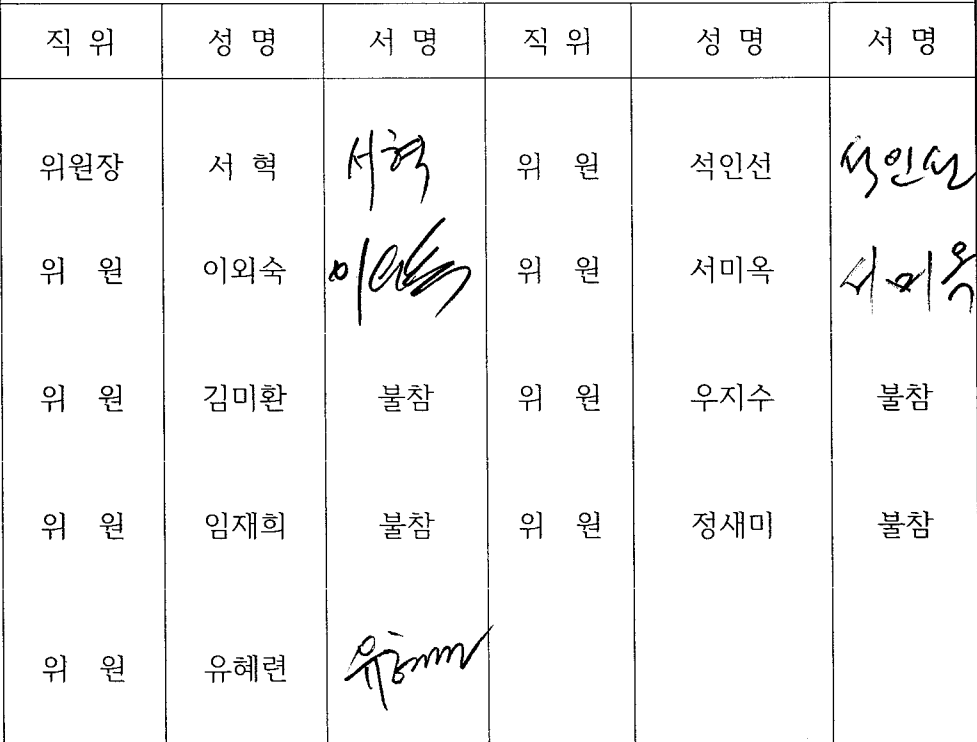 직 위 성 명 서 명 직 위 성 명 서 명
위원장 서 혁 서혁 위 원 석인선 석인선
위 원 이외숙 이외숙 위 원 서미옥 서미옥
위 원 김미환 불참 위 원 우지수 불참
위 원 임재희 불참 위 원 정새미 불참
위 원 유혜련